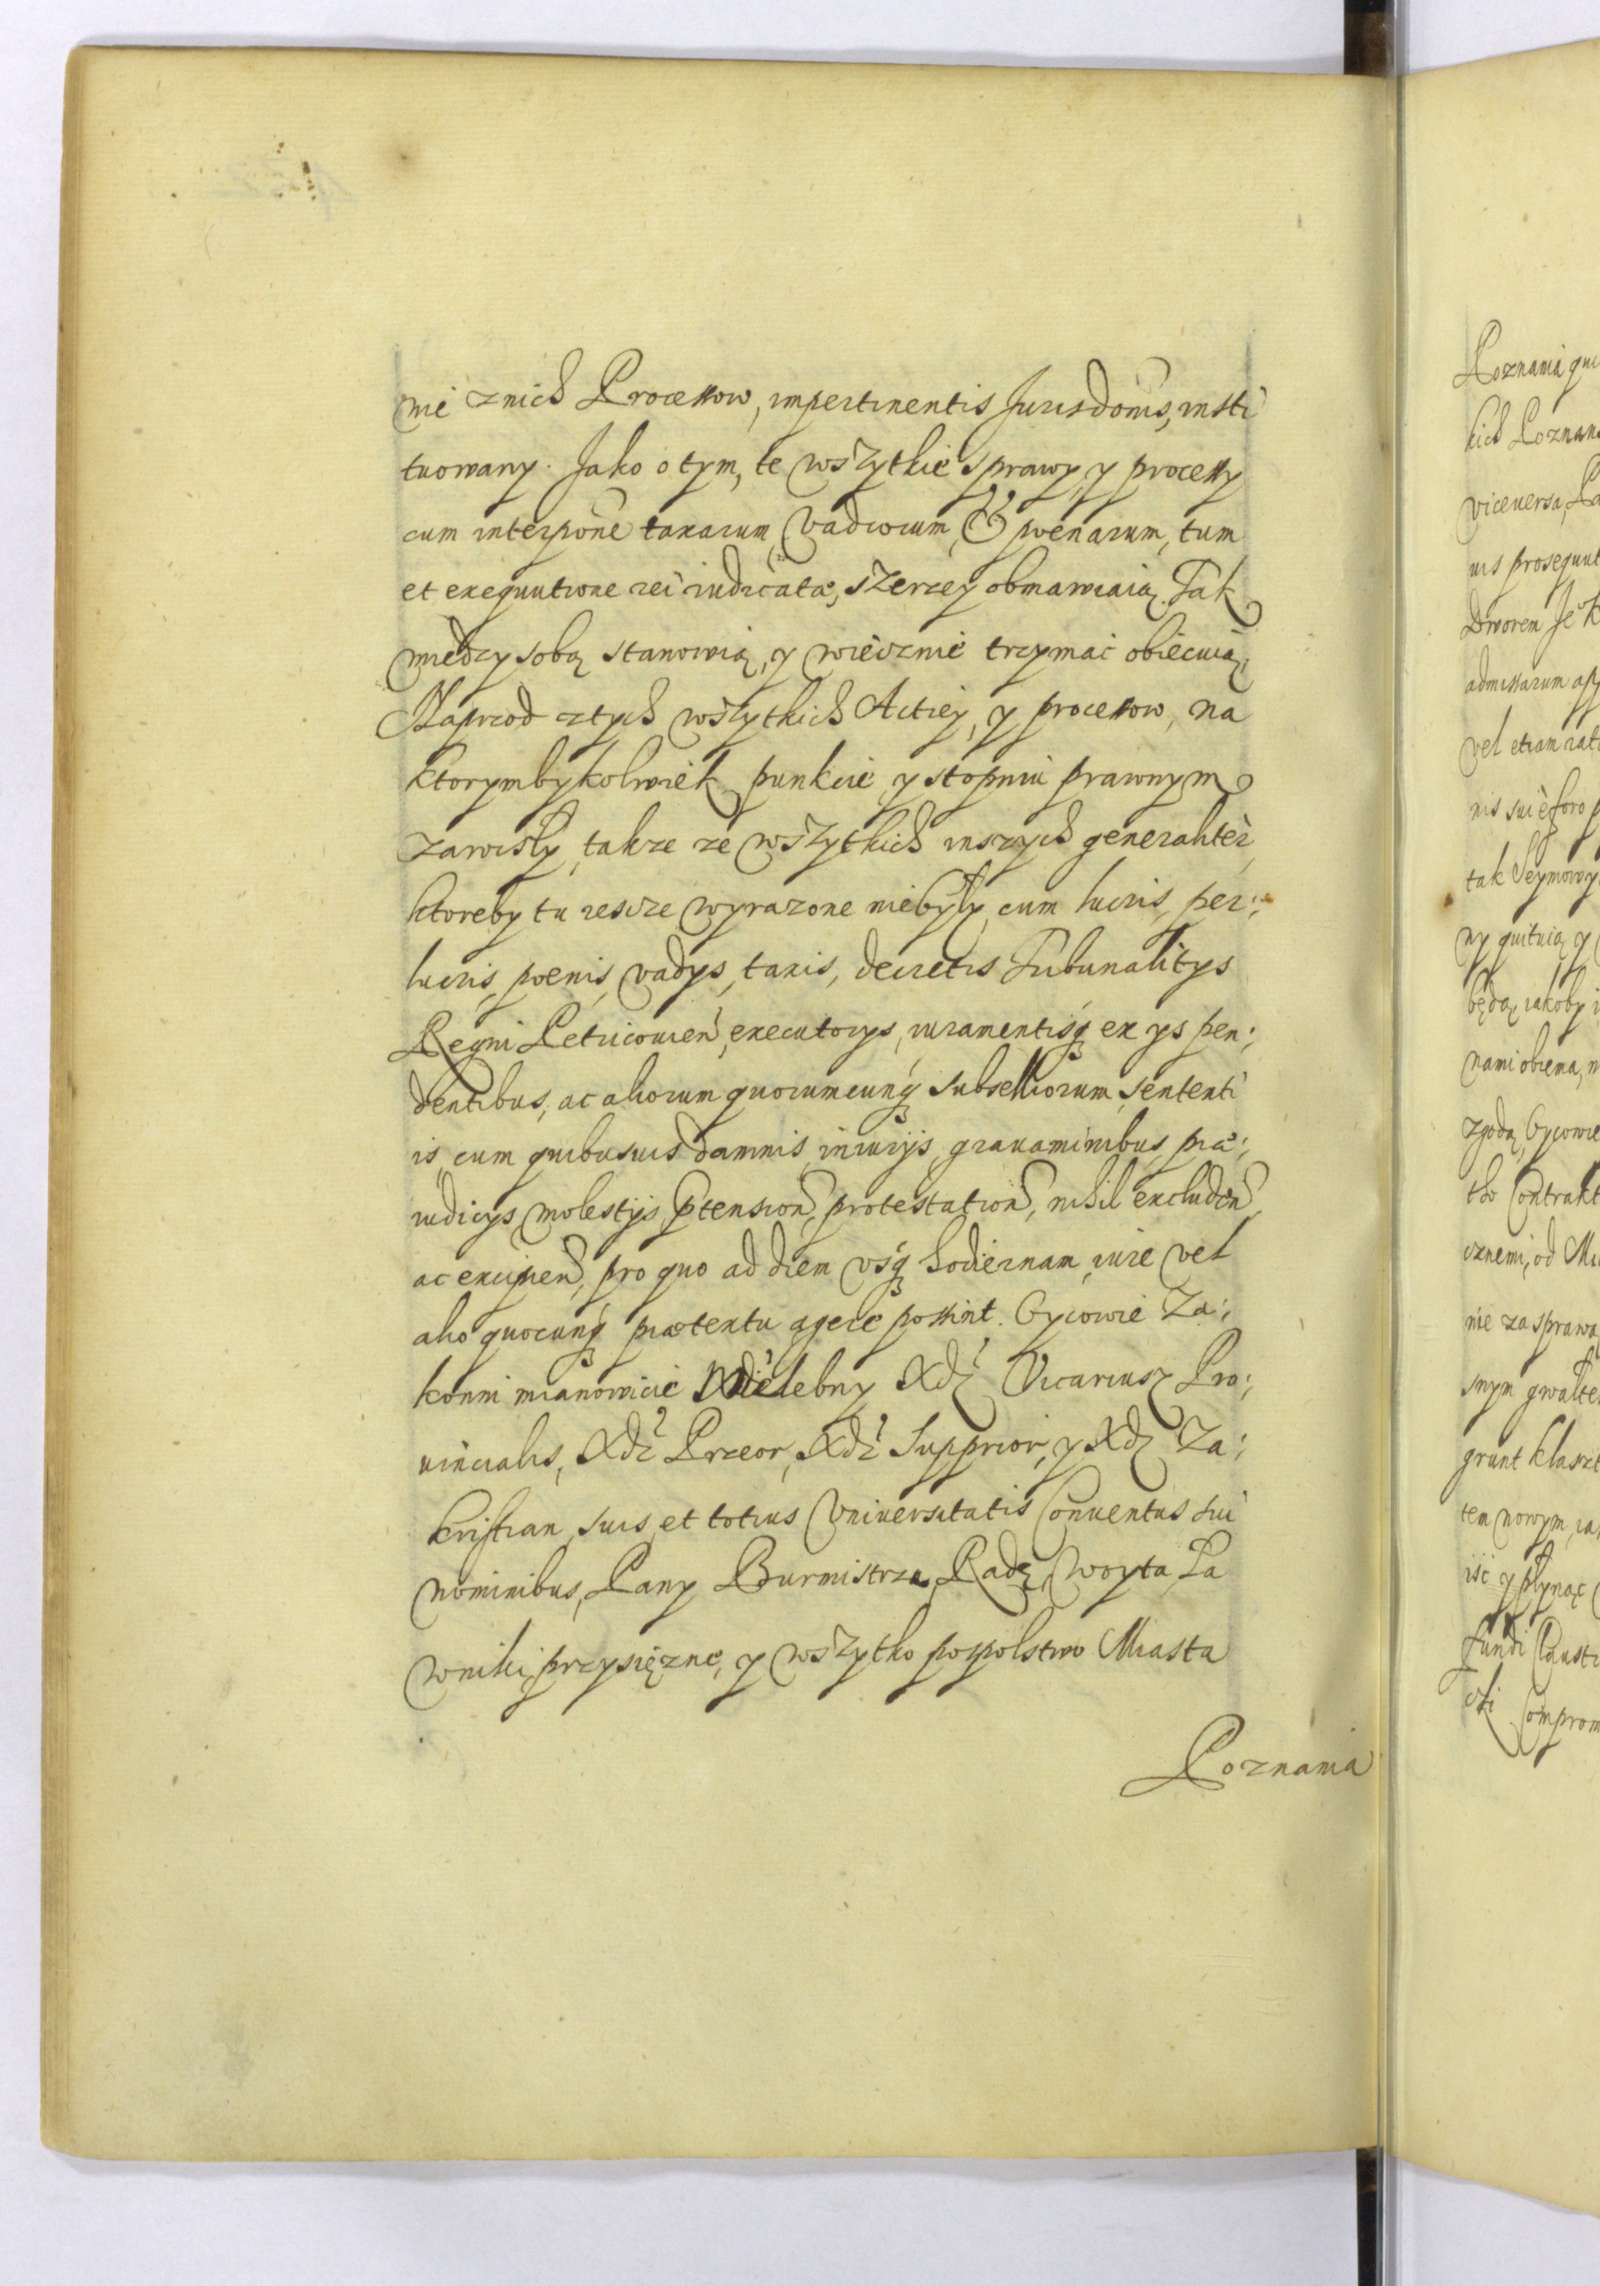 nie znich Processow, impertinentis Jurisdonis, insti
tuowany. Jako o tym, te wszytkie sprawy, y processy
cum interpone taxarum, vadiorum, & poenarum, tum
et exequutione rei iudicatæ, szerzey obmawiaią. Tak
miedzy sobą stanowią, y wiecznie trzymac obiecuią.
Naprzod ztych wszytkich Actiey, y processow, na
ktorymbykolwiek punkcie y stopniu prawnym
zawisły, takze ze wszytkich inszych generaliter
ktoreby tu iescze wyrazone niebyły cum lucris, per:
lucris, poenis, vadys, taxis, decretis Tribunalitys
Regni Petricouien, executorys, iuramentisq ex ys pen:
dentibus, ac aliorum quorumcunq subselliorum sententi
is, cum quibusuis damnis, iniurijs, grauaminibus, præ:
iudicys molestijs ptension, protestation, nihil excluden
ac excipien, pro quo ad diem vsq hodiernam, iure vel
alio quocunq prætextu agere possint. Oycowie Za:
konni mianowicie Wielebny Xdz Vicariusz Pro:
uincialis, Xdz Przeor, Xdz Supprior, y Xdz Za:
kristian, suis et totius Vniuersitatis Conuentus sui
nominibus, Pany Burmistrza, Radę, Woyta, Ła
wniki przysięzne, y wszytko pospolstwo Miasta
Poznania
Poznania qui
kich Poznan
viceuersa, Pa
uis prosequut
Dworem Je K
admissarum app
vel etiam rati
nis sui e foro p
tak Seymowy
ny quituią y
będą, iakoby i
nami obiema, n
zgodą, Oycowie
tho Contrakt
cznemi, od Mi
nie za sprawą
snym gwałte
grunt klaszt
ten nowym, ia
iśc y płynąc
fundi Claustr
cki Comprom